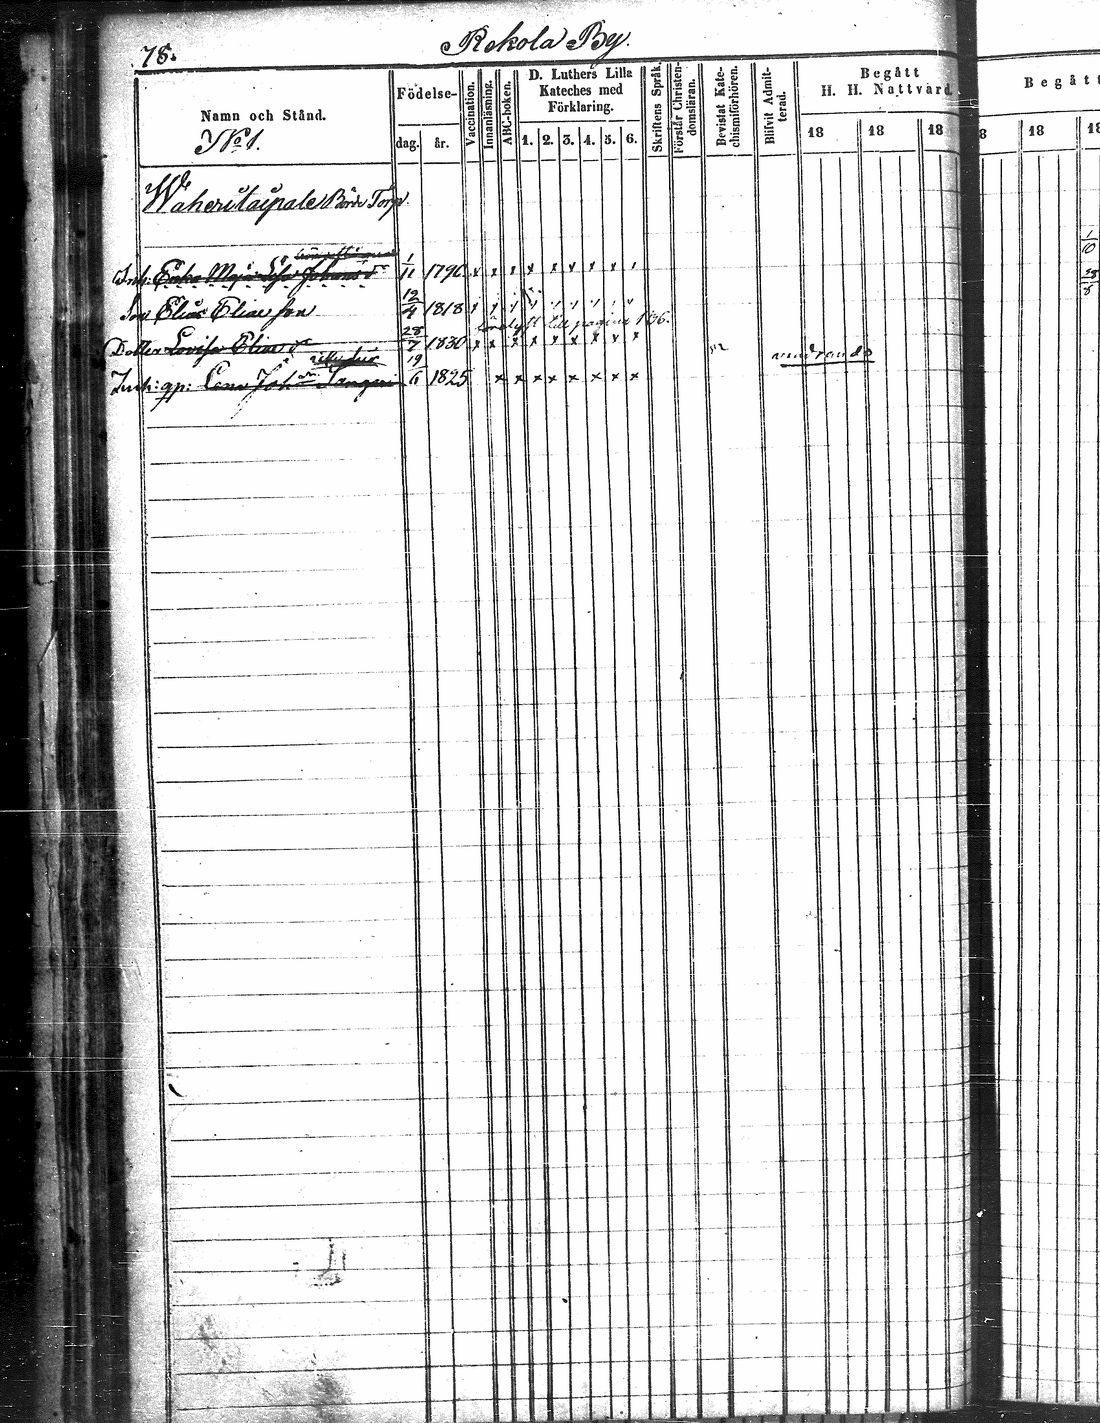 78.
Rekola By.
Namn och Stånd.
Födelse-
dag.
år.
Vaccination.
Innanläsning.
ABC-boken.
D. Luthers Lilla
Kateches med
Förklaring.
1. 2. 3. 4. 5. 6.
Skriftens Språk.
Förstår Christen-
domsläran.
Bevistat Kate-
chismiförhören.
Blifvit Admit-
terad.
Begått
H. H. Nattvard.
18 18 18
Begått
8 18 18
No 1.
Waheritaipale Torp.
Enka Maja Johans dr 1/11 1796 x x x x x x x x
1/10
Son Elias Elias son 12/4 1818
28/8
till pagina 136.
Dotter Lovisa Elias dr 28/7 1830 x x x x x x x x x
vandrande
Inh: Lena Joh 19/6 1825 x x x x x x x x